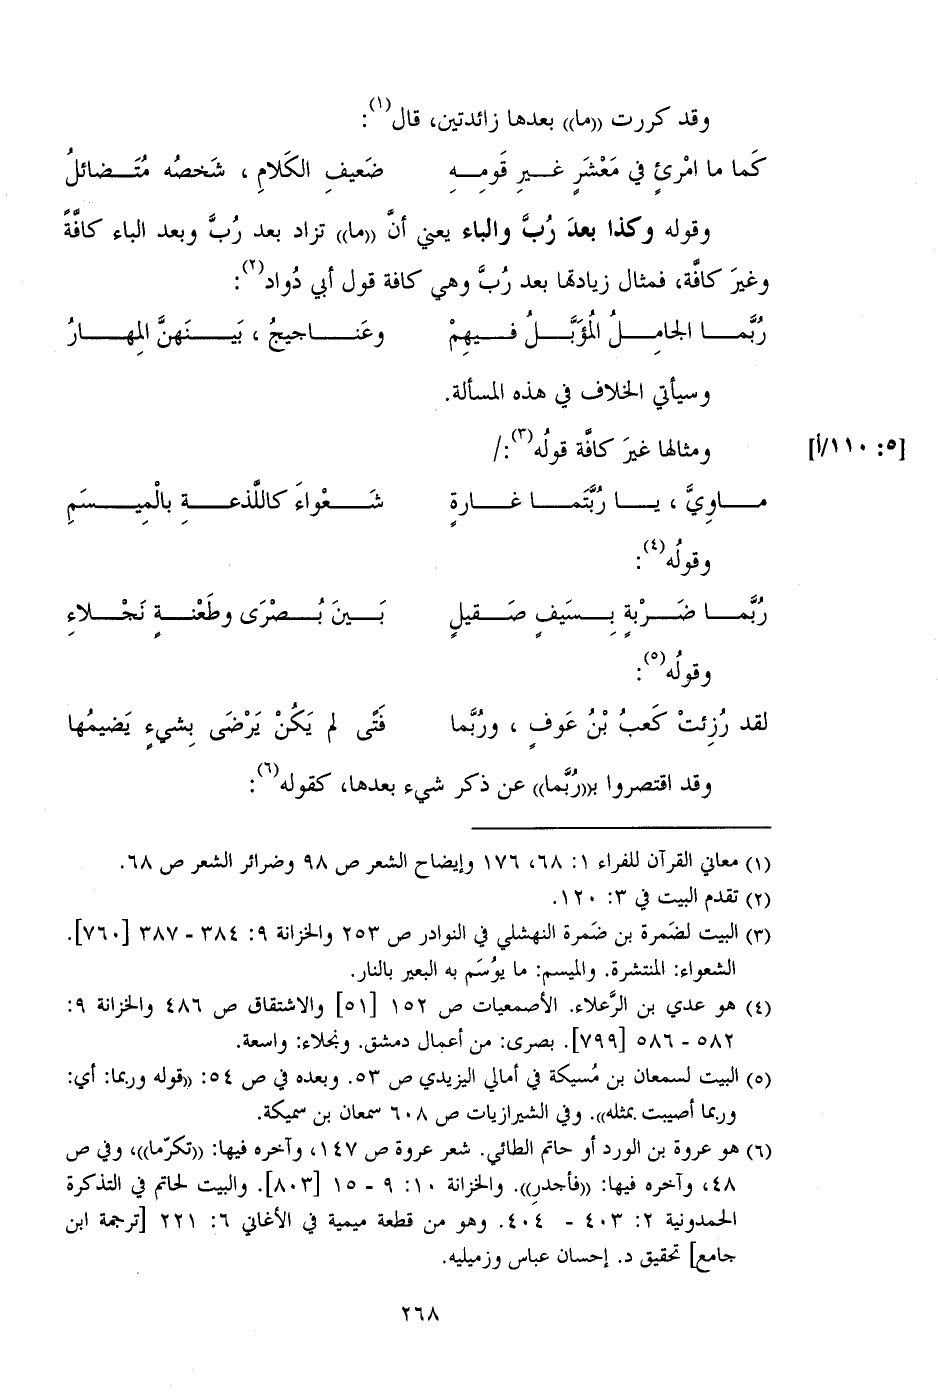 وقد كررت ((ما)) بعدها زائدتين، قال(١):
كَما ما امْرئٍ في مَعْشَرٍ غـــيرِ قَومِــهِ ضَعيفِ الكَلامِ ، شَخصُه مُتَــضائلُ
وقوله وكذا بعدَ رُبَّ والباء يعني أنَّ ((ما)) تزاد بعد رُبَّ وبعد الباء كافَّةً
وغيرَ كافَّة، فمثال زيادتها بعد رُبَّ وهي كافة قول أبي دُواد(٢):
رُبَّمـــا الجامِـــلُ المُؤَبَّـــلُ فـــيهِمْ وعَنـــاجيجُ ، بَيـــنَهنَّ المِهـــارُ
وسيأتي الخلاف في هذه المسألة.
ومثالها غيرَ كافَّة قولُه(٣):/ [٥: ١١٠/أ]
مـــاوِيَّ ، يـــا رُبَّتَمـــا غـــارةٍ شَـــعْواءَ كاللَّذعـــةِ بالْمِيـــسَمِ
وقولُه(٤):
رُبَّمـــا ضَـــرْبةٍ بِـــسَيفٍ صَـــقيلٍ بَـــينَ بُـــصْرَى وطَعْنـــةٍ نَجْـــلاءِ
وقولُه(٥):
لقد رُزِئتْ كَعبُ بْنُ عَوفٍ ، ورُبَّما فَتًى لم يَكُنْ يَرْضَى بِشيءٍ يَضيمُها
وقد اقتصروا بـ((رُبَّما)) عن ذكر شيء بعدها، كقوله(٦):
(١) معاني القرآن للفراء ١: ٦٨، ١٧٦ وإيضاح الشعر ص ٩٨ وضرائر الشعر ص ٦٨.
(٢) تقدم البيت في ٣: ١٢٠.
(٣) البيت لضَمرة بن ضَمرة النهشلي في النوادر ص ٢٥٣ والخزانة ٩: ٣٨٤ - ٣٨٧ [٧٦٠].
الشعواء: المنتشرة. والميسم: ما يوُسَم به البعير بالنار.
(٤) هو عدي بن الرَّعلاء. الأصمعيات ص ١٥٢ [٥١] والاشتقاق ص ٤٨٦ والخزانة ٩:
٥٨٢ - ٥٨٦ [٧٩٩]. بصرى: من أعمال دمشق. ونجلاء: واسعة.
(٥) البيت لسمعان بن مُسيكة في أمالي اليزيدي ص ٥٣. وبعده في ص ٥٤: ((قوله وربما: أي:
وربما أصيبت بمثله)). وفي الشيرازيات ص ٦٠٨ سمعان بن سميكة.
(٦) هو عروة بن الورد أو حاتم الطائي. شعر عروة ص ١٤٧، وآخره فيها: ((تكرّما))، وفي ص
٤٨، وآخره فيها: ((فأجدرِ)). والخزانة ١٠: ٩ - ١٥ [٨٠٣]. والبيت لحاتم في التذكرة
الحمدونية ٢: ٤٠٣ - ٤٠٤. وهو من قطعة ميمية في الأغاني ٦: ٢٢١ [ترجمة ابن
جامع] تحقيق د. إحسان عباس وزميليه.
٢٦٨